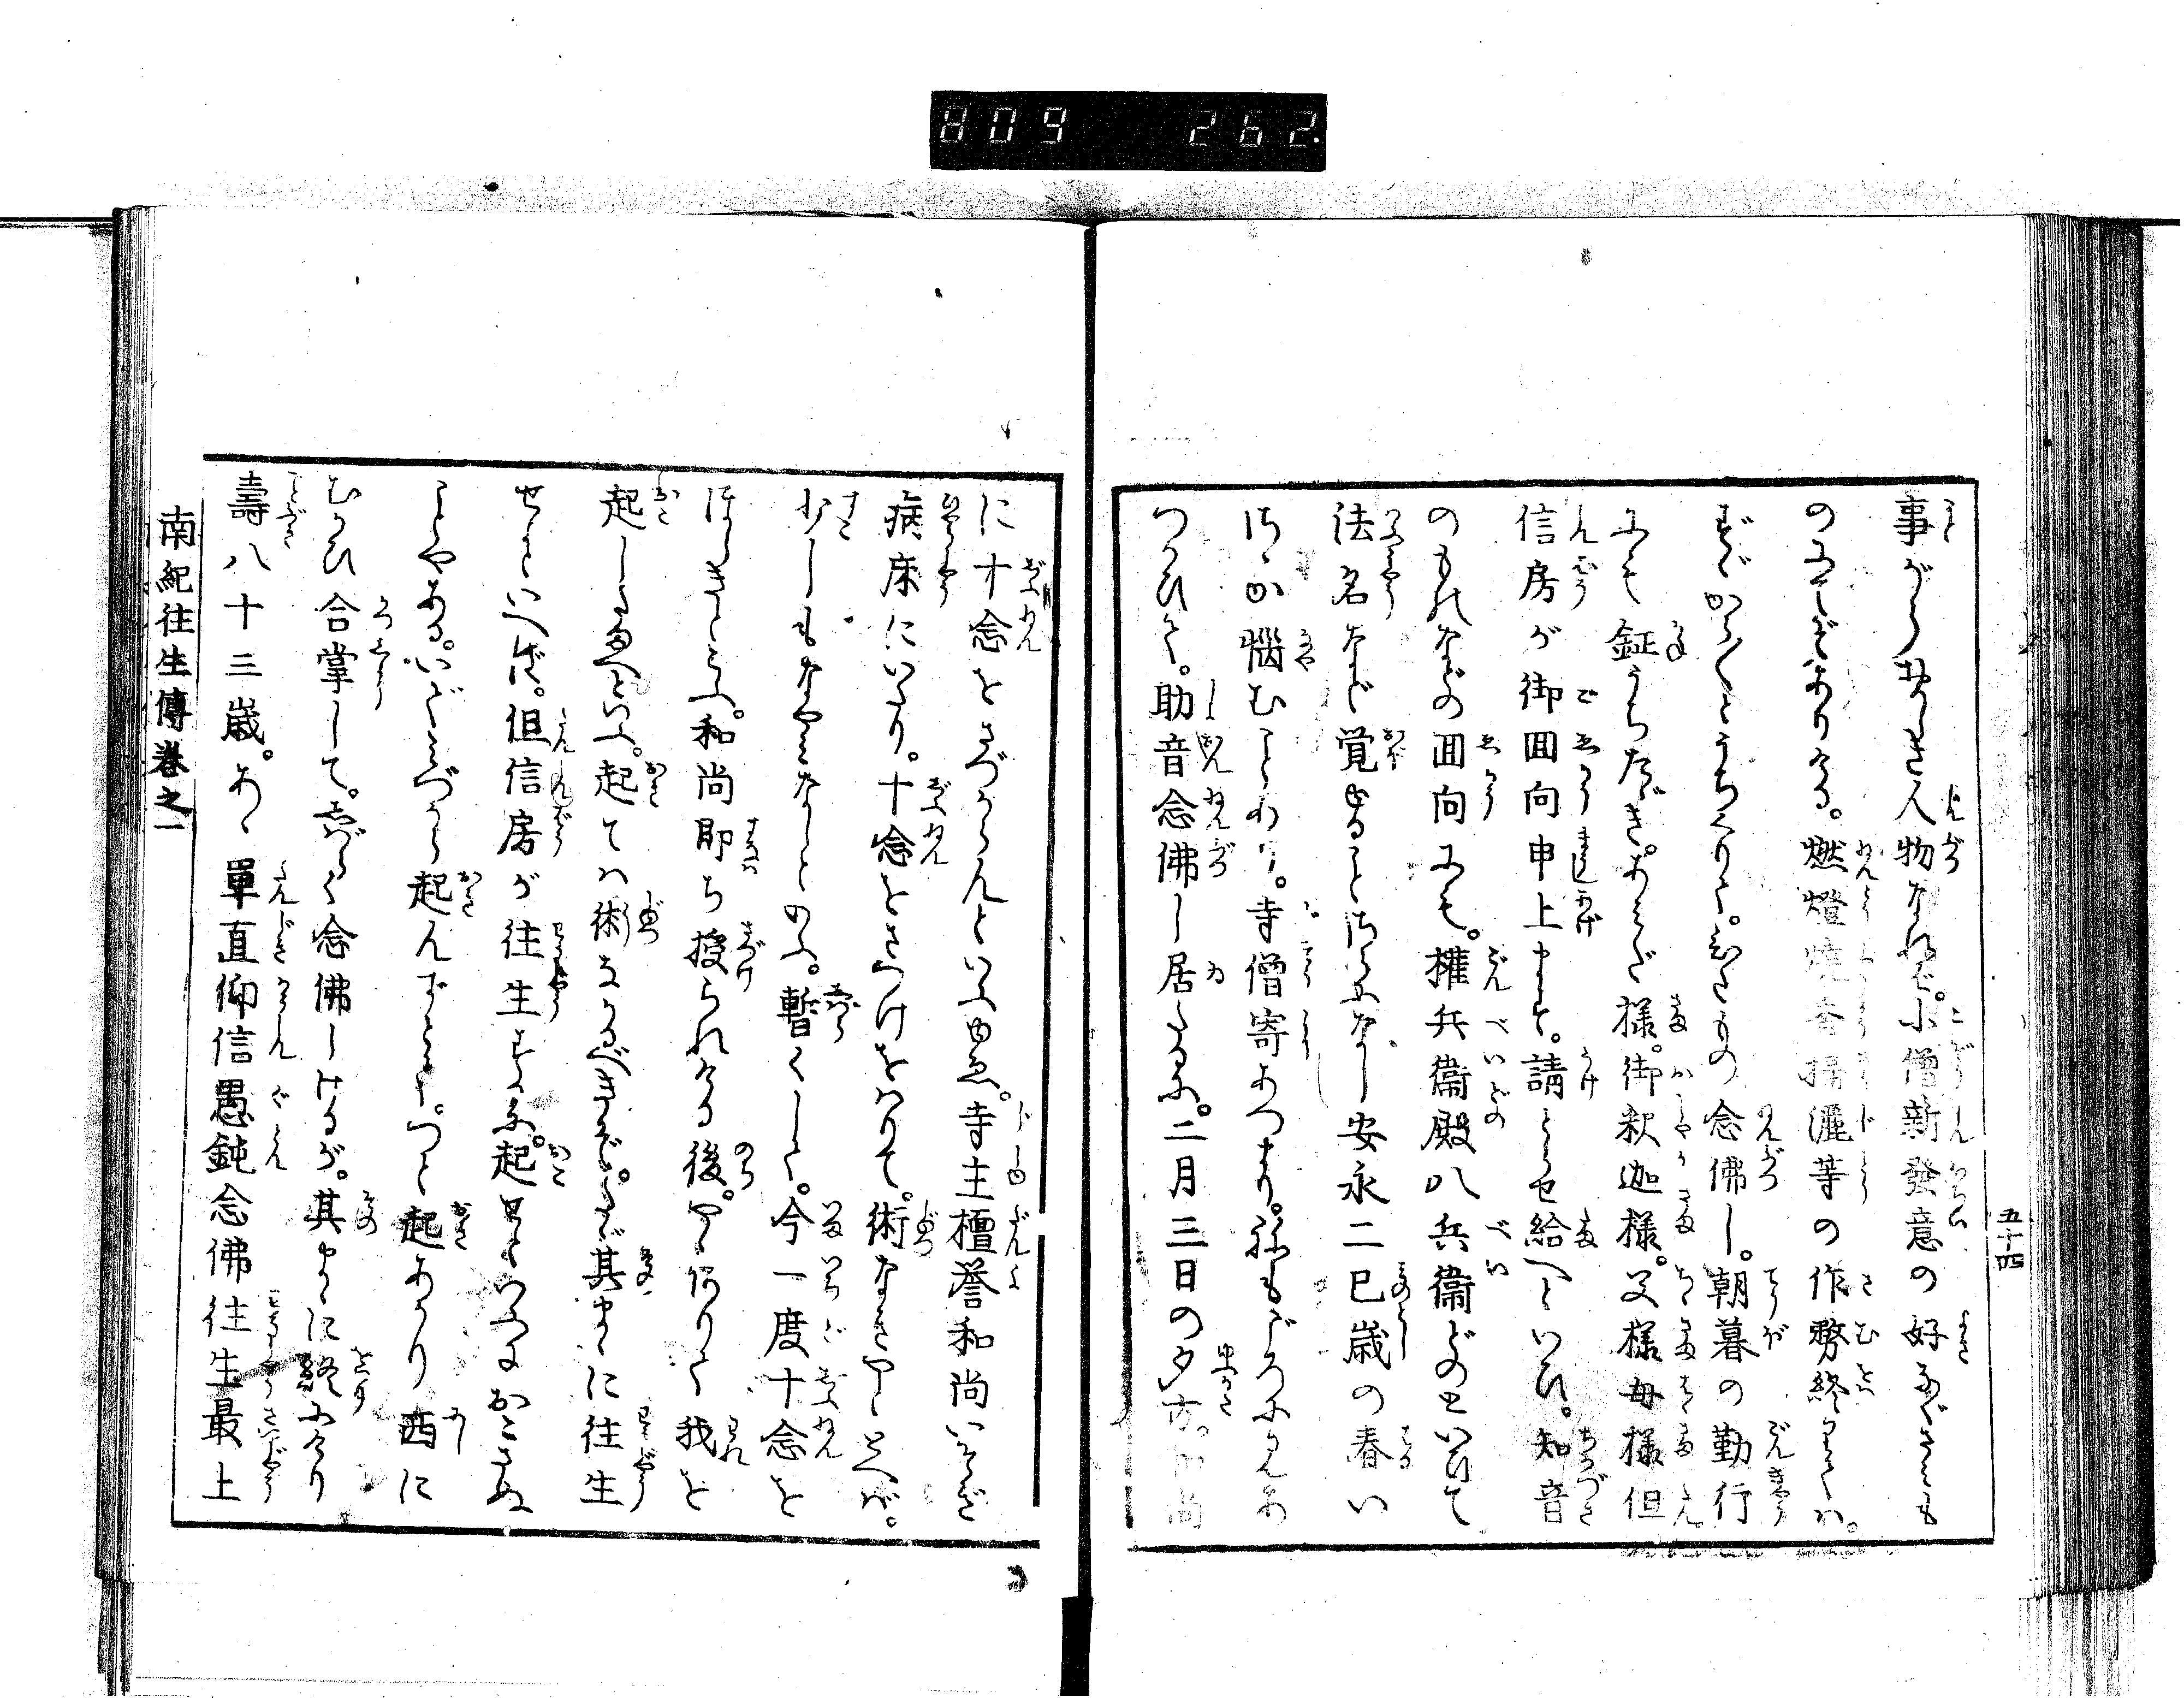 809 262
五十四
事がらおかしき人物なれど。小僧新發意の好なぐさみも
のにてぞありける。燃燈燒香掃灑等の作務終りては。
念佛し。朝暮の勤行
にも鉦うちたゝき。あみだ樣。御釈迦樣。父樣母樣但
信房が御囬向申上ます。請とらせ給へといひ。知音
のものなどの囬向にも。權兵衞殿八兵衞どのといひて
法名など覚ゆることはなし安永二巳歳の春い
さゝか悩むことあり。寺僧寄あつまり。
つかひて。助音念佛し居たるに。二月三日の夕方。和尚
に十念をさづからんといふゆゑ。寺主檀誉和尚いそぎ
病床にいたり。十念をさづけをはりて。術なきやととへば。
少しもなやみなしとのふ。暫くして。今一度十念を
ほしきとこふ。和尚即ち授られける後。やゝありて我を
起したまへといふ。起ては術なかるべきぞ。たゞ其まゝに往生
せよといへば。但信房が往生するに。起せといふにおこさぬ
ことやある。いでみづから起んずとて。つと起あがり西に
むかひ合掌して。しばらく念佛しけるが。其まゝに終にけり
壽八十三歳。あゝ單直仰信愚鈍念佛往生最上
南紀往生傳卷之一